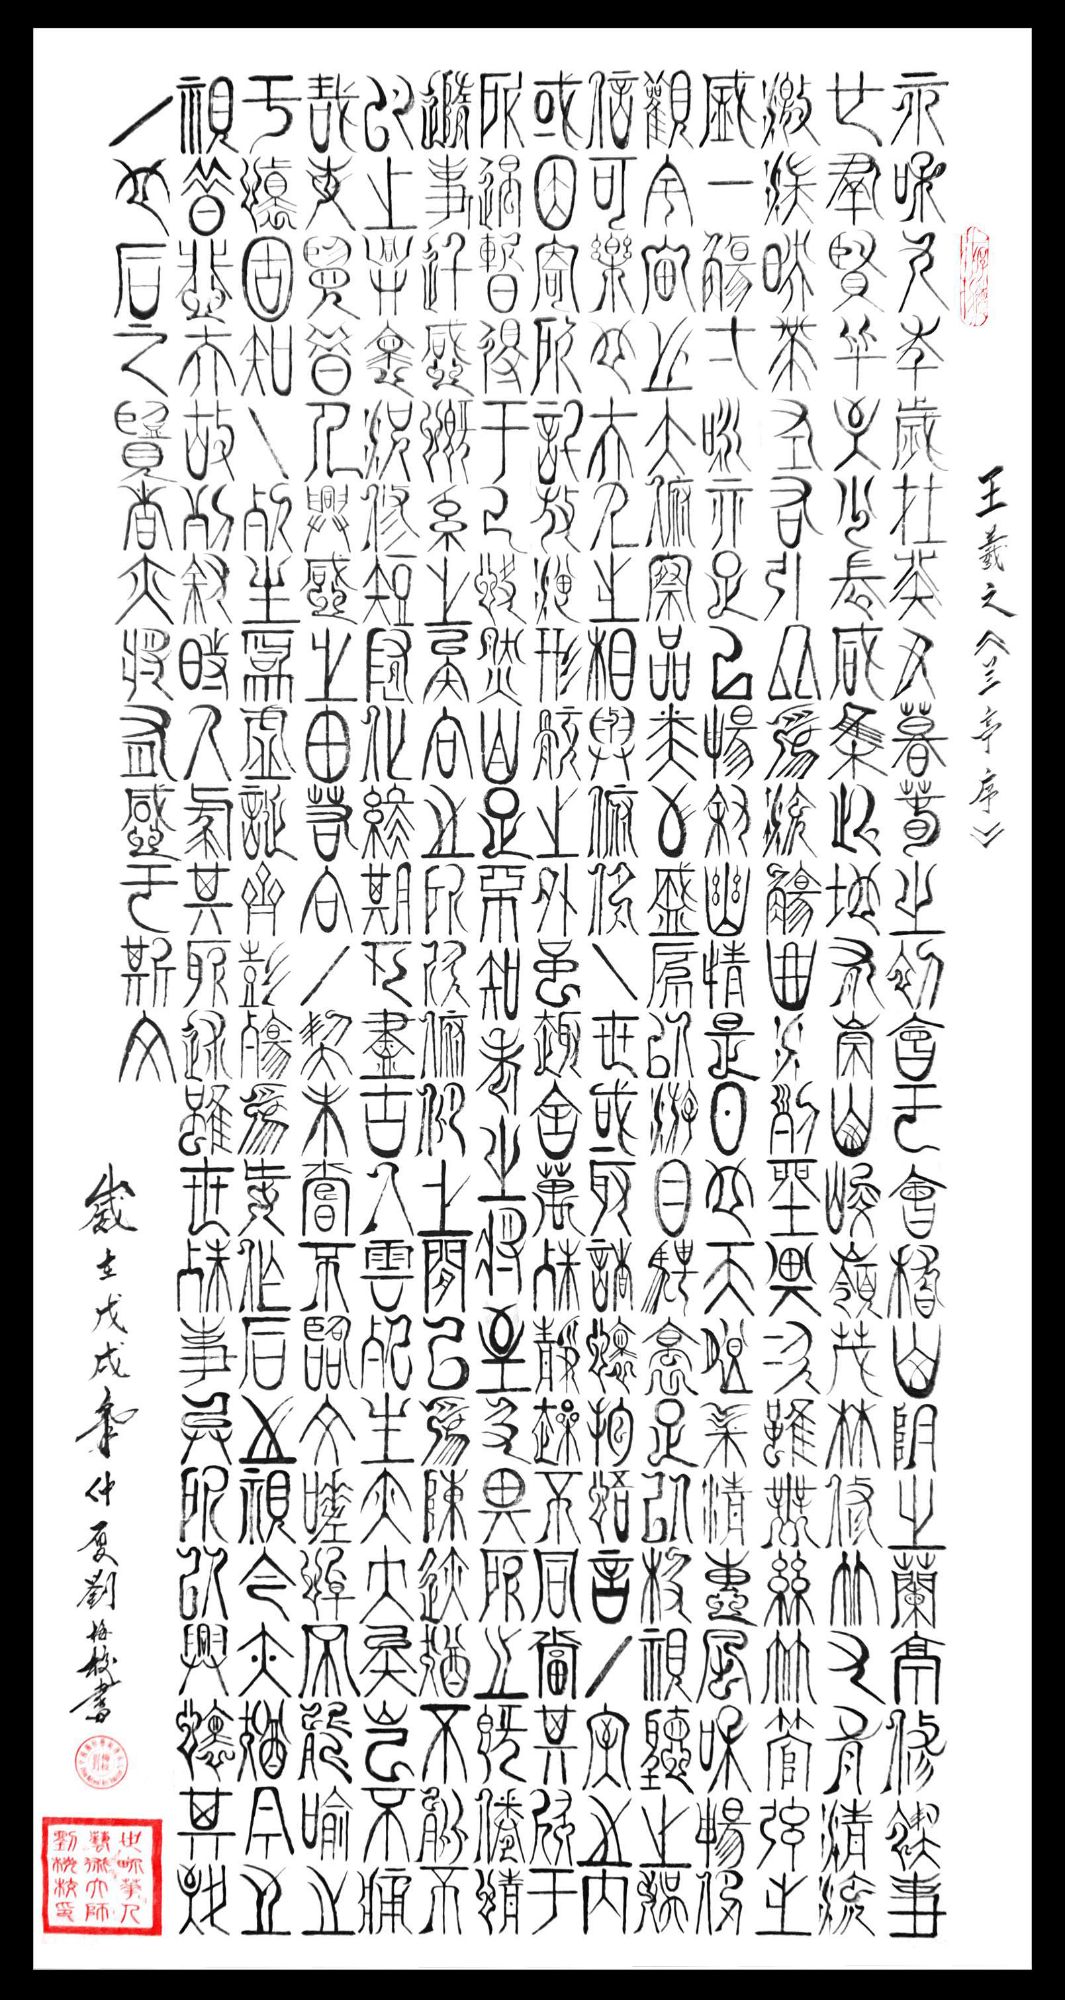 王羲之《兰亭序》
永和九年歲在癸丑暮春之初會于會稽山陰之蘭亭修禊事
也群賢畢至少長咸集此地有崇山峻嶺茂林修竹又有清流
激湍映帶左右引以為流觴曲水列坐其次雖無絲竹管弦之
盛一觴一詠亦足以暢敘幽情是日也天朗氣清惠風和暢仰
觀宇宙之大俯察品類之盛所以游目騁懷足以極視聽之娛
信可樂也夫人之相與俯仰一世或取諸懷抱悟言一室之內
或因寄所託放浪形骸之外雖趣舍萬殊靜躁不同當其欣于
所遇暫得于己快然自足不知老之將至及其所之既倦情
隨事遷感慨係之矣向之所欣俯仰之間已為陳迹猶不能不
以之興懷況修短隨化終期于盡古人云死生亦大矣豈不痛
哉每覽昔人興感之由若合一契未嘗不臨文嗟悼不能喻之
于懷固知一死生為虛誕齊彭殤為妄作后之視今亦猶今之
視昔悲夫故列敘時人錄其所述雖世殊事異所以興懷其致
一也后之覽者亦將有感于斯文
歲在戊戌年仲夏劉梅枝書